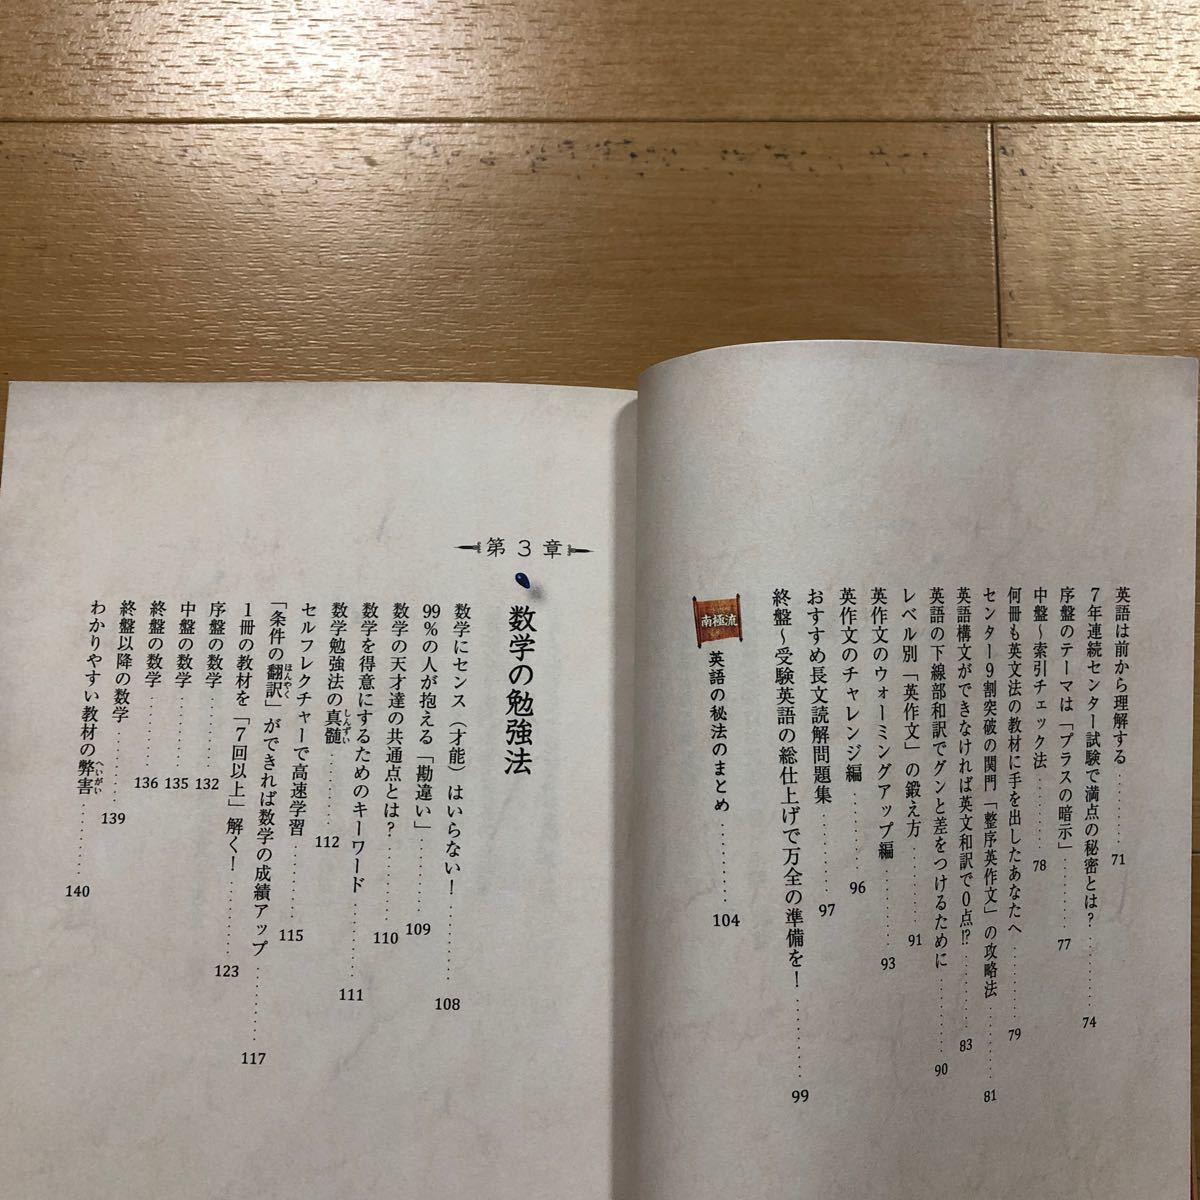 英語は前から理解する………71
7年連続センター試験で満点の秘密とは?………74
序盤のテーマは「プラスの暗示」………77
中盤〜索引チェック法………78
何冊も英文法の教材に手を出したあなたへ………79
センター9割突破の関門「整序英作文」の攻略法………81
英語構文ができなければ英文和訳で0点!?………83
英語の下線部和訳でグンと差をつけるために………90
レベル別「英作文」の鍛え方………91
英作文のウォーミングアップ編………93
英作文のチャレンジ編………96
おすすめ長文読解問題集………97
終盤〜受験英語の総仕上げで万全の準備を!………99
南極流 英語の秘法のまとめ………104
第3章
数学の勉強法
数学にセンス(才能)はいらない!………108
99%の人が抱える「勘違い」………109
数学の天才達の共通点とは?………110
数学を得意にするためのキーワード………111
数学勉強法の真髄(しんずい)………112
セルフレクチャーで高速学習………115
「条件の翻訳(ほんやく)」ができれば数学の成績アップ………117
1冊の教材を「7回以上」解く!………123
序盤の数学………132
中盤の数学………135
終盤の数学………136
終盤以降の数学………139
わかりやすい教材の弊害(へいがい)………140